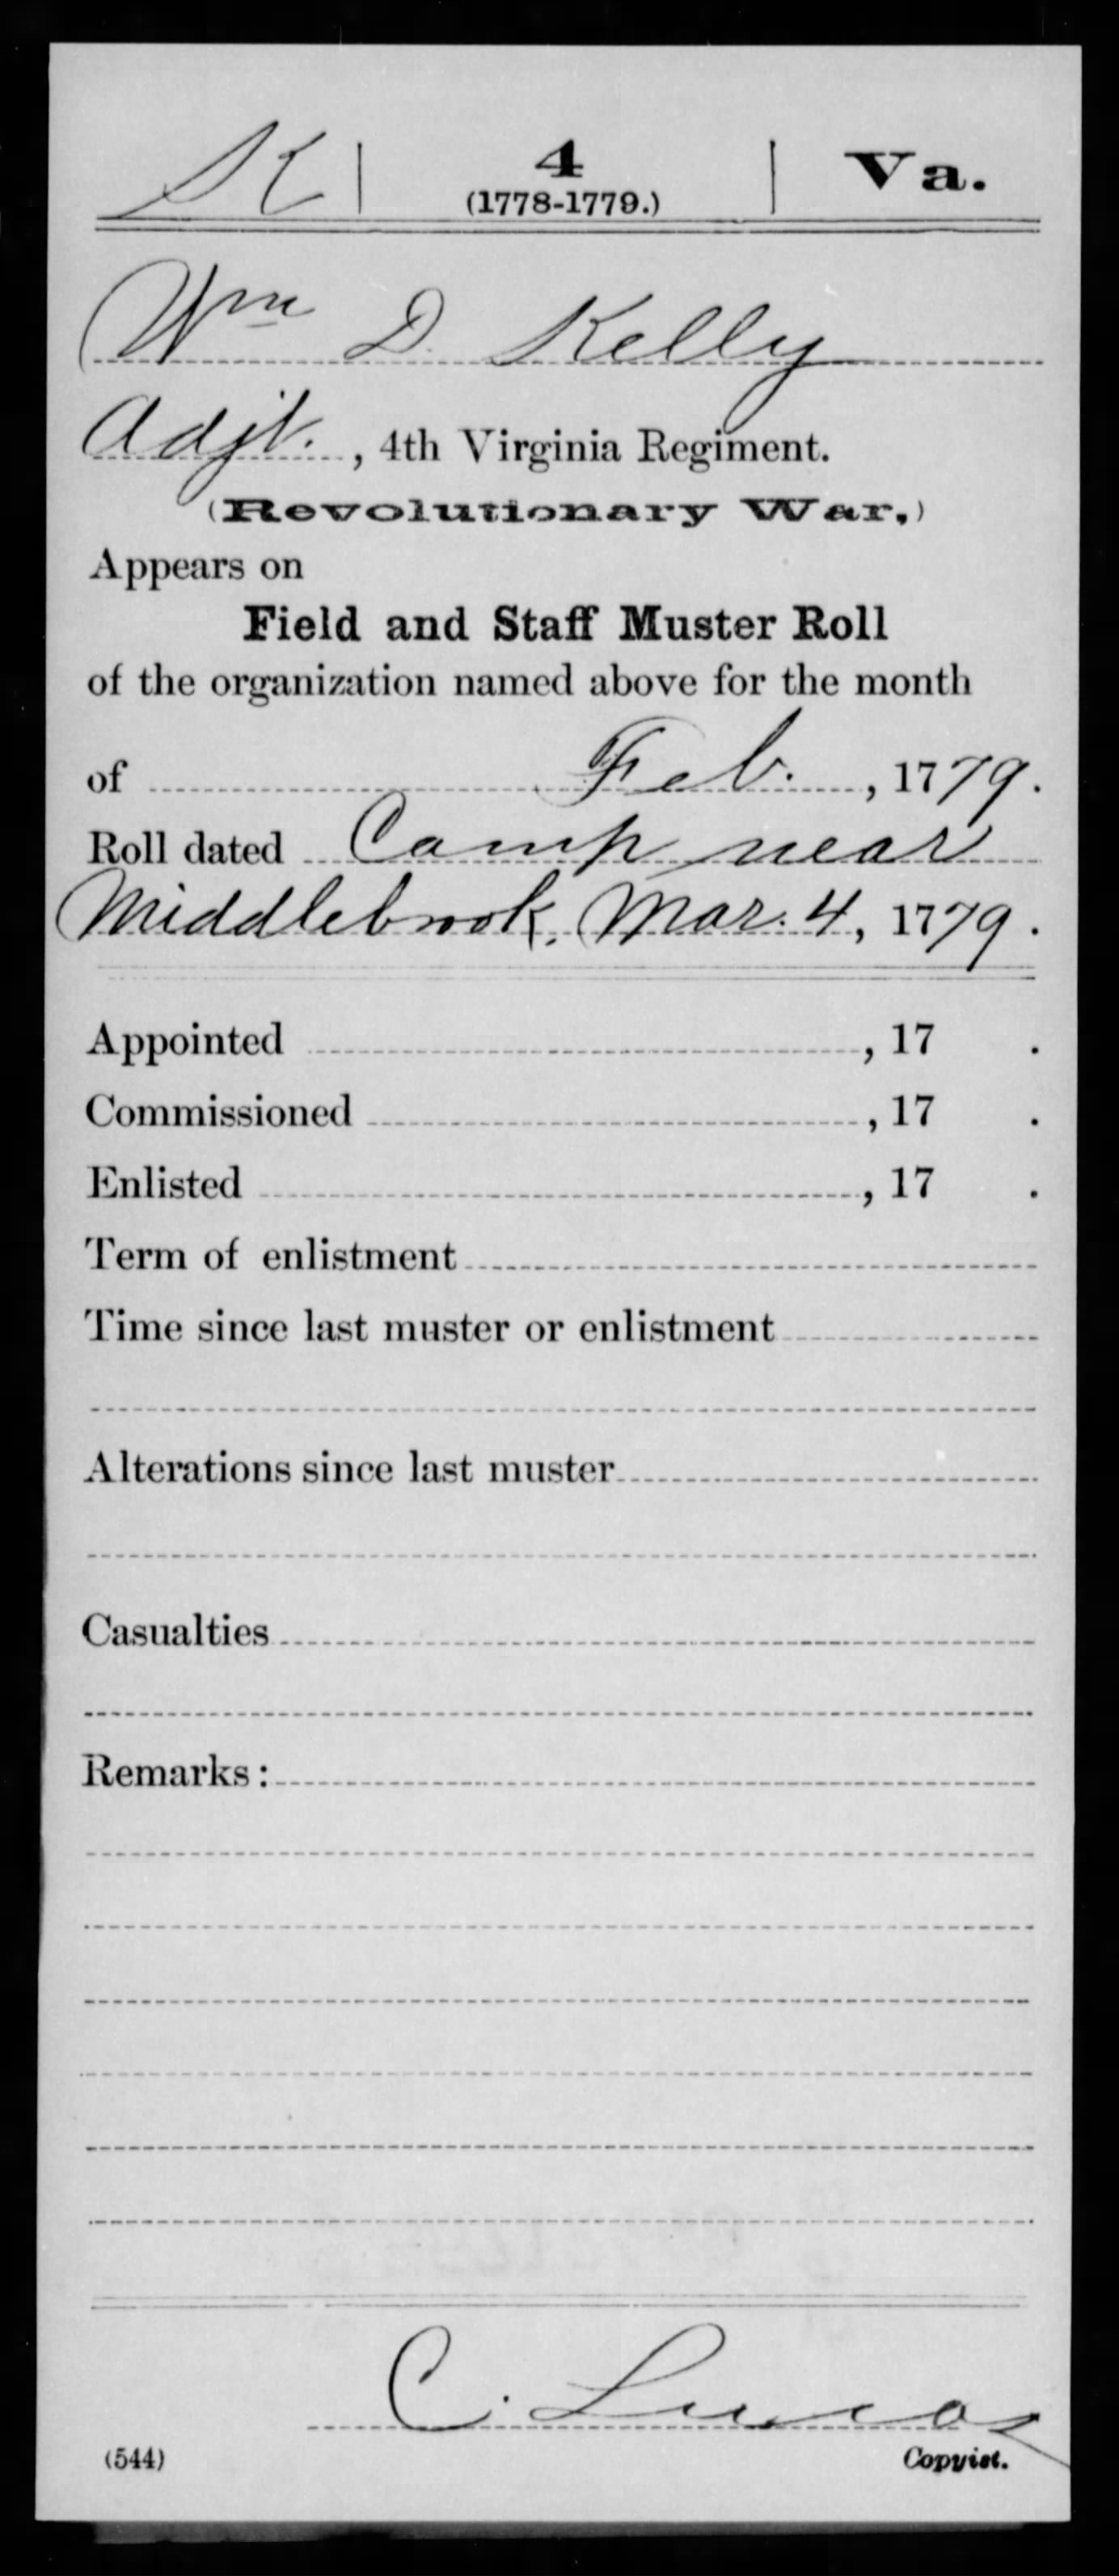 K | 4 | Va.
(1778-1779.)
Wm D. Kelly
Adjt., 4th Virginia Regiment.
(Revolutionary War.)
Appears on
Field and Staff Muster Roll
of the organization named above for the month
of Feb., 1779.
Roll dated Camp near
Middlebrook, Mar. 4, 1779.
Appointed , 17 .
Commissioned , 17 .
Enlisted , 17 .
Term of enlistment
Time since last muster or enlistment
Alterations since last muster
Casualties
Remarks:
C. Lucas
(544) Copyist.